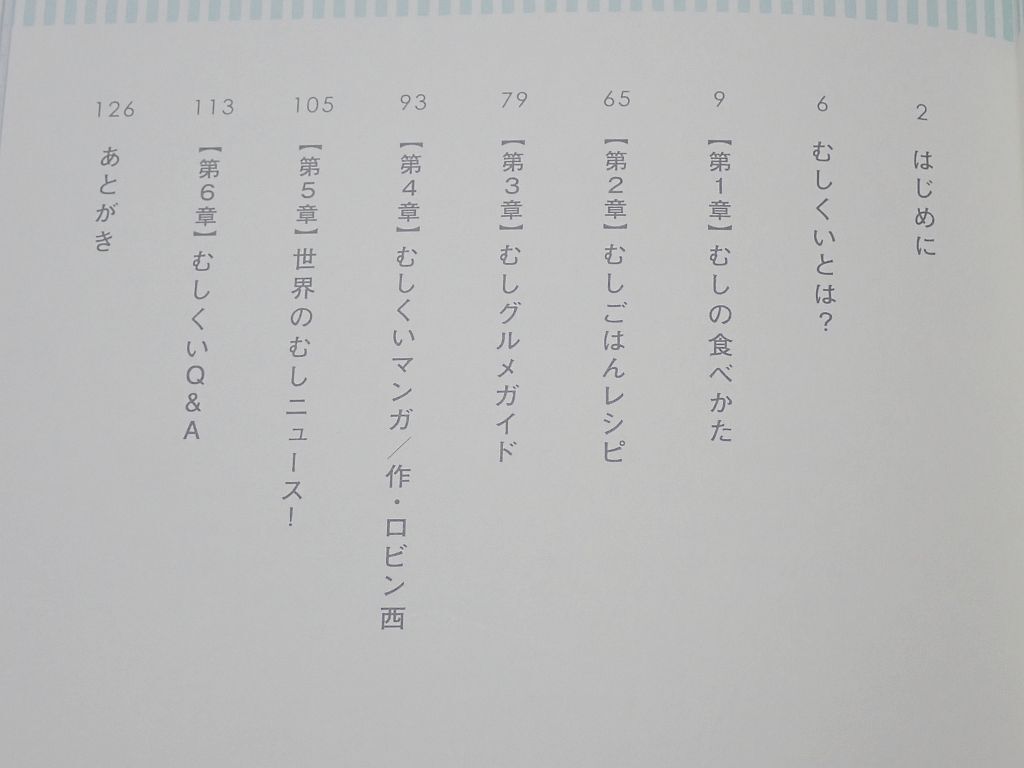 2 はじめに
6 むしくいとは？
9 【第1章】むしの食べかた
65 【第2章】むしごはんレシピ
79 【第3章】むしグルメガイド
93 【第4章】むしくいマンガ／作・ロビン西
105 【第5章】世界のむしニュース！
113 【第6章】むしくいQ&A
126 あとがき